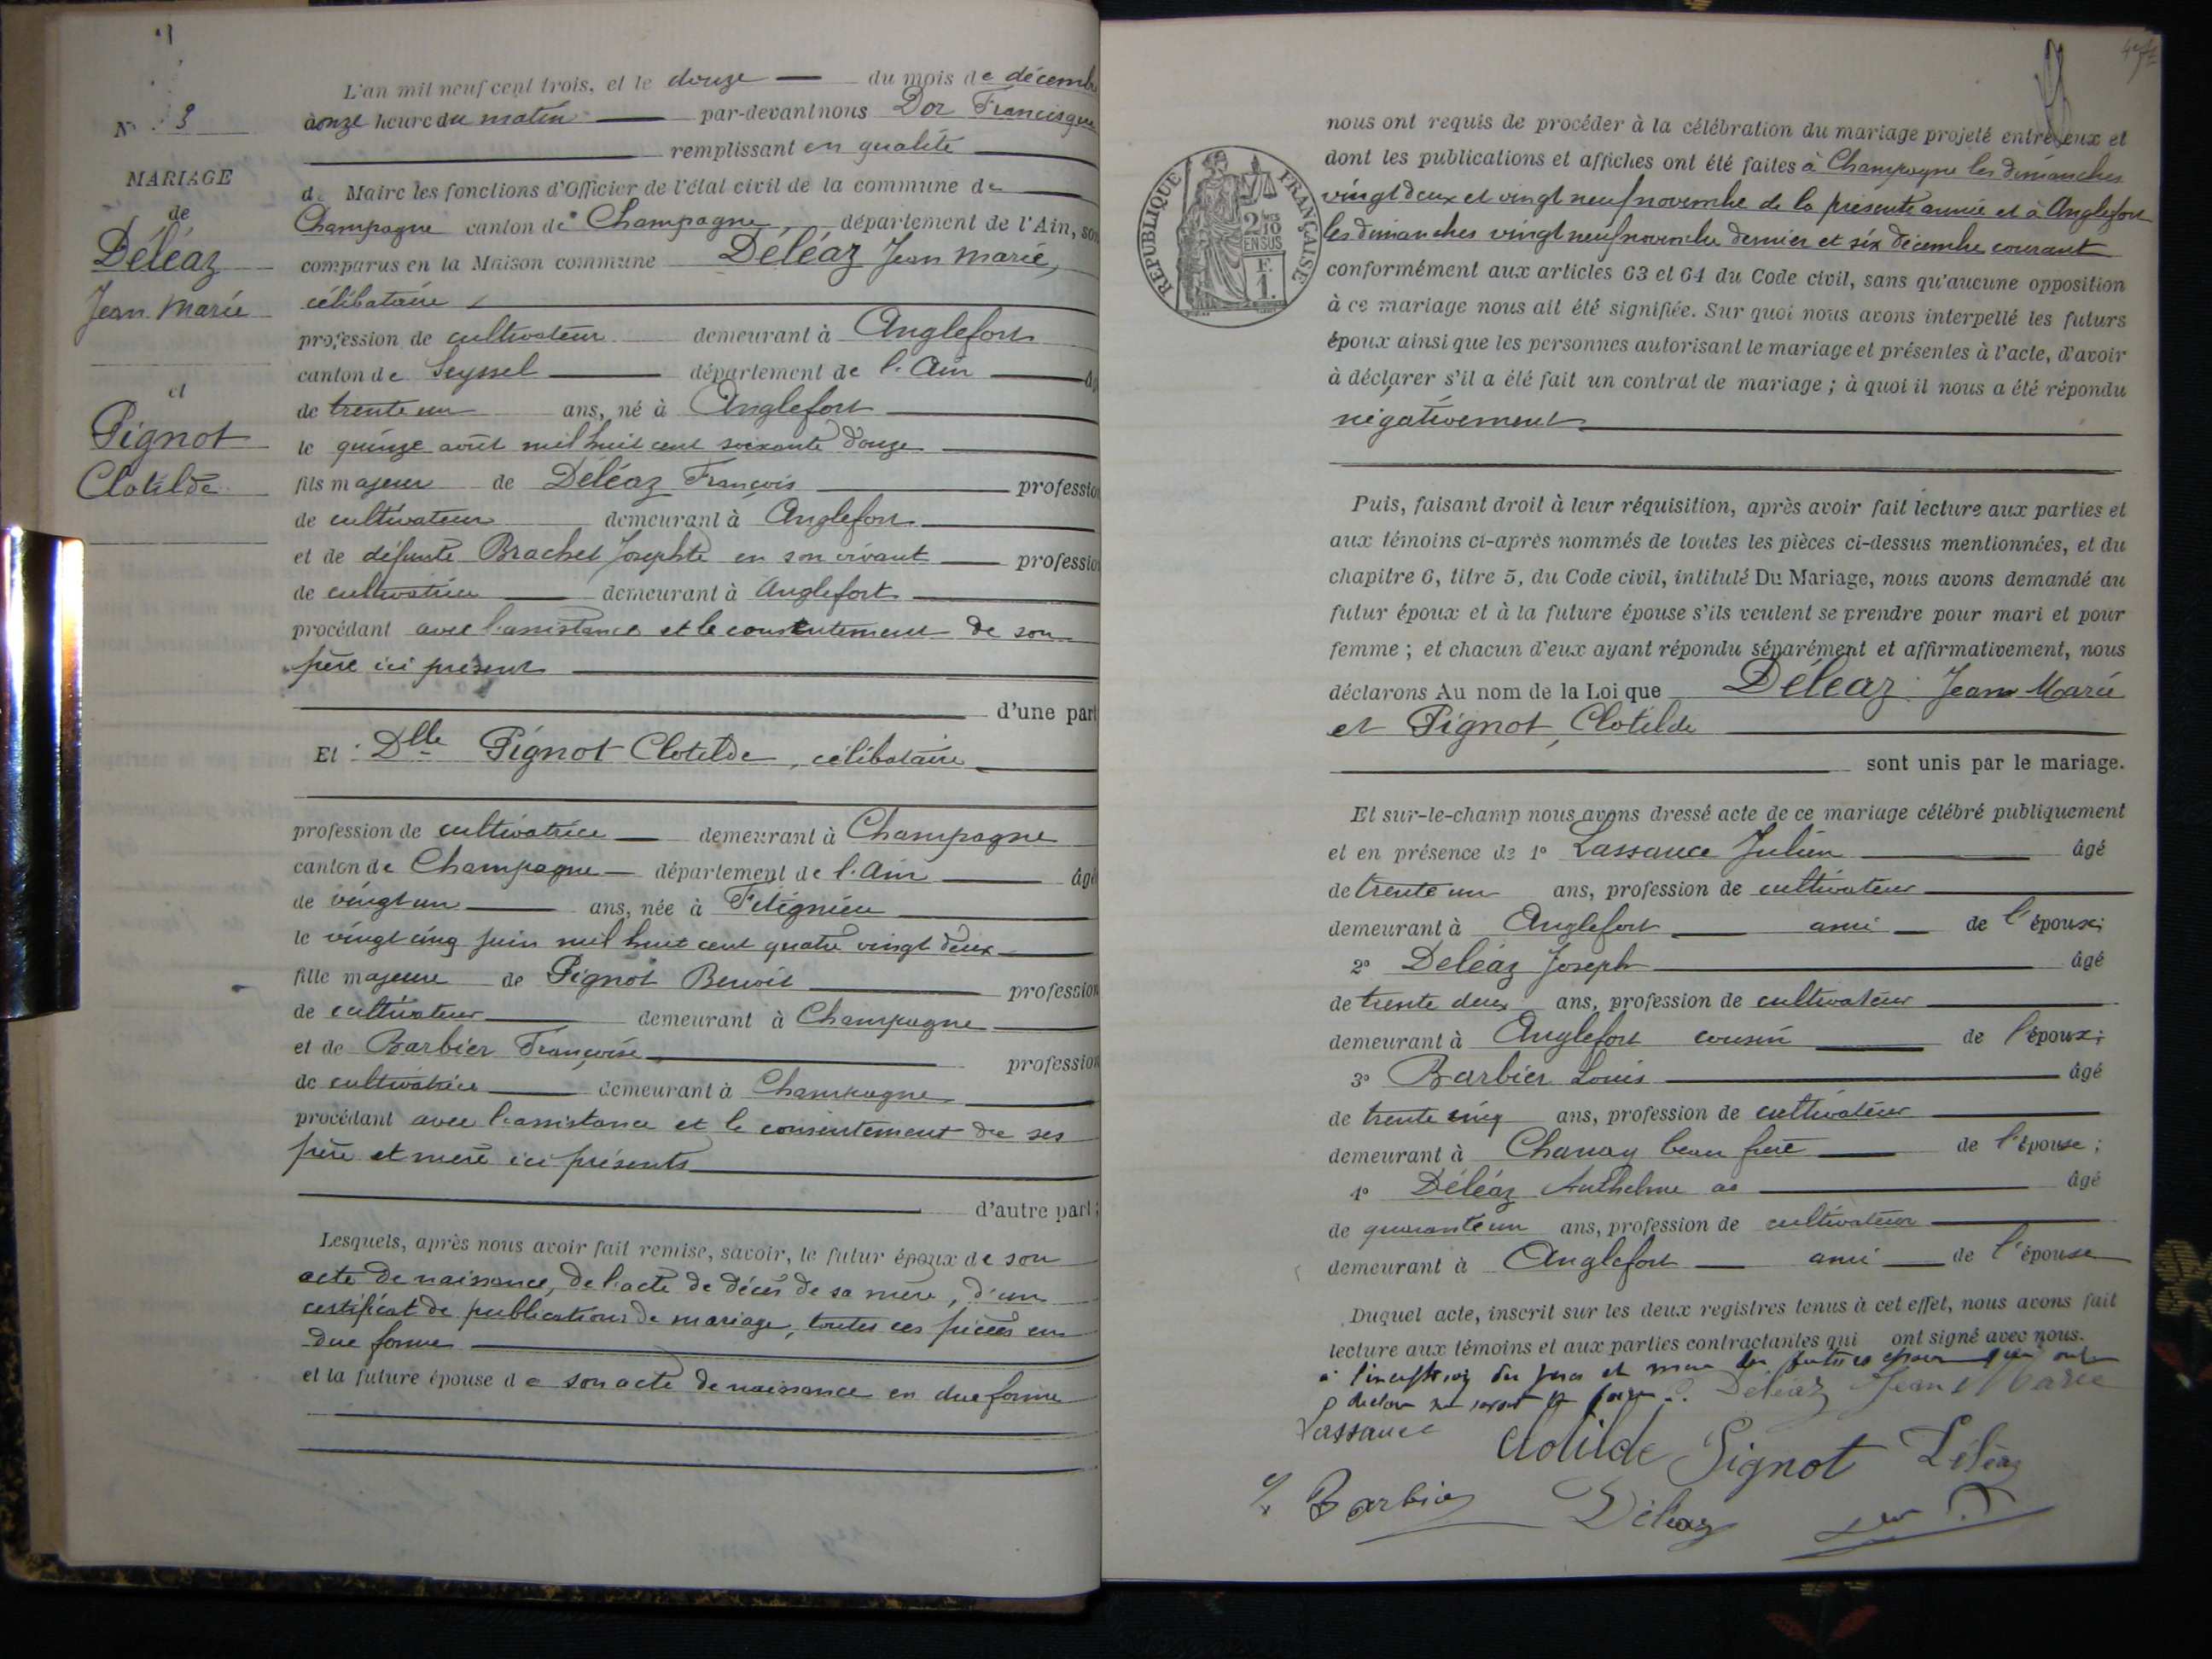 N° 3
MARIAGE
de
Déléaz
Jean Marie
et
Pignot
Clotilde
L'an mil neuf cent trois, et le douze du mois de décembre
à onze heure du matin par-devant nous Dor Francisque
remplissant en qualité
de Maire les fonctions d'Officier de l'état civil de la commune de
Champagne canton de Champagne, département de l'Ain, son
comparus en la Maison commune Déléaz Jean Marie,
célibataire
profession de cultivateur demeurant à Anglefort
canton de Seyssel département de l'Ain âg
de trente un ans, né à Anglefort
le quinze août mil huit cent soixante douze
fils majeur de Déléaz François profession
de cultivateur demeurant à Anglefort
et de défunte Brachet Josephte en son vivant profession
de cultivatrice demeurant à Anglefort
procédant avec l'assistance et le consentement de son
père ici présent
d'une part
Et Dlle Pignot Clotilde, célibataire
profession de cultivatrice demeurant à Champagne
canton de Champagne département de l'Ain âgé
de vingt un ans, née à Fitignieu
le vingt cinq juin mil huit cent quatre vingt deux
fille majeure de Pignot Benoit profession
de cultivateur demeurant à Champagne
et de Barbier Françoise profession
de cultivatrice demeurant à Champagne
procédant avec l'assistance et le consentement de ses
père et mère ici présents
d'autre part ;
Lesquels, après nous avoir fait remise, savoir, le futur époux de son
acte de naissance, de l'acte de décès de sa mère, d'un
certificat de publications de mariage, toutes ces pièces en
due forme
et la future épouse de son acte de naissance en due forme
RÉPUBLIQUE FRANÇAISE
2/10
EN SUS
F.
1.
nous ont requis de procéder à la célébration du mariage projeté entre eux et
dont les publications et affiches ont été faites à Champagne les dimanches
vingt deux et vingt neuf novembre de la présente année et à Anglefort
les dimanches vingt neuf novembre dernier et six décembre courant
conformément aux articles 63 et 64 du Code civil, sans qu'aucune opposition
à ce mariage nous ait été signifiée. Sur quoi nous avons interpellé les futurs
époux ainsi que les personnes autorisant le mariage et présentes à l'acte, d'avoir
à déclarer s'il a été fait un contrat de mariage ; à quoi il nous a été répondu
négativement
Puis, faisant droit à leur réquisition, après avoir fait lecture aux parties et
aux témoins ci-après nommés de toutes les pièces ci-dessus mentionnées, et du
chapitre 6, titre 5, du Code civil, intitulé Du Mariage, nous avons demandé au
futur époux et à la future épouse s'ils veulent se prendre pour mari et pour
femme ; et chacun d'eux ayant répondu séparément et affirmativement, nous
déclarons Au nom de la Loi que Déléaz Jean Marie
et Pignot, Clotilde
sont unis par le mariage.
Et sur-le-champ nous avons dressé acte de ce mariage célébré publiquement
et en présence de 1° Lassauce Julien âgé
de trente un ans, profession de cultivateur
demeurant à Anglefort ami de l'époux;
2° Deléaz Joseph âgé
de trente deux ans, profession de cultivateur
demeurant à Anglefort cousin de l'époux;
3° Barbier Louis âgé
de trente cinq ans, profession de cultivateur
demeurant à Chanay beau frère de l'épouse ;
4° Déléaz Anthelme âgé
de quarante un ans, profession de cultivateur
demeurant à Anglefort ami de l'épouse
Duquel acte, inscrit sur les deux registres tenus à cet effet, nous avons fait
lecture aux témoins et aux parties contractantes qui ont signé avec nous.
à l'exception des père et mère
Déléaz Jean Marie
Lassauce
Clotilde Pignot Déléaz
Barbier Déléaz